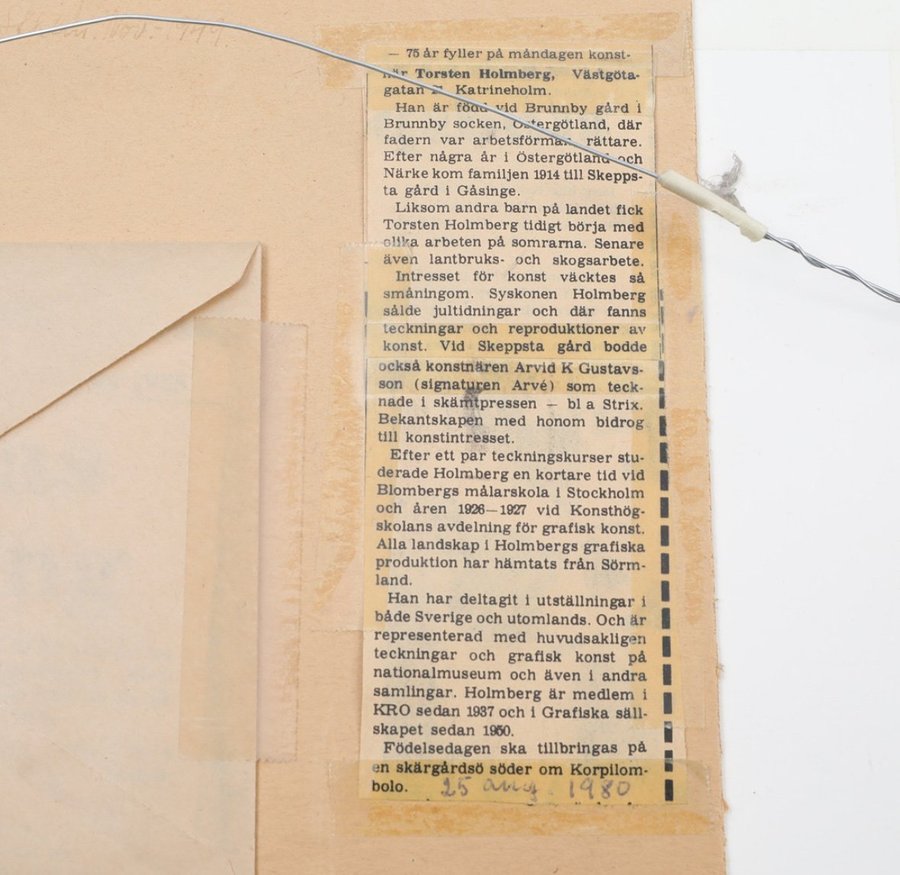 Nov. 1949.
— 75 år fyller på måndagen konst-
när Torsten Holmberg, Västgöta-
gatan Katrineholm.
Han är född vid Brunnby gård i
Brunnby socken, Östergötland, där
fadern var arbetsförman, rättare.
Efter några år i Östergötland och
Närke kom familjen 1914 till Skepps-
ta gård i Gåsinge.
Liksom andra barn på landet fick
Torsten Holmberg tidigt börja med
olika arbeten på somrarna. Senare
även lantbruks- och skogsarbete.
Intresset för konst väcktes så
småningom. Syskonen Holmberg
sålde jultidningar och där fanns
teckningar och reproduktioner av
konst. Vid Skeppsta gård bodde
också konstnären Arvid K Gustavs-
son (signaturen Arvé) som teck-
nade i skämtpressen — bl a Strix.
Bekantskapen med honom bidrog
till konstintresset.
Efter ett par teckningskurser stu-
derade Holmberg en kortare tid vid
Blombergs målarskola i Stockholm
och åren 1926—1927 vid Konsthög-
skolans avdelning för grafisk konst.
Alla landskap i Holmbergs grafiska
produktion har hämtats från Sörm-
land.
Han har deltagit i utställningar i
både Sverige och utomlands. Och är
representerad med huvudsakligen
teckningar och grafisk konst på
nationalmuseum och även i andra
samlingar. Holmberg är medlem i
KRO sedan 1937 och i Grafiska säll-
skapet sedan 1950.
Födelsedagen ska tillbringas på
en skärgårdsö söder om Korpilom-
bolo. 25 aug. 1980